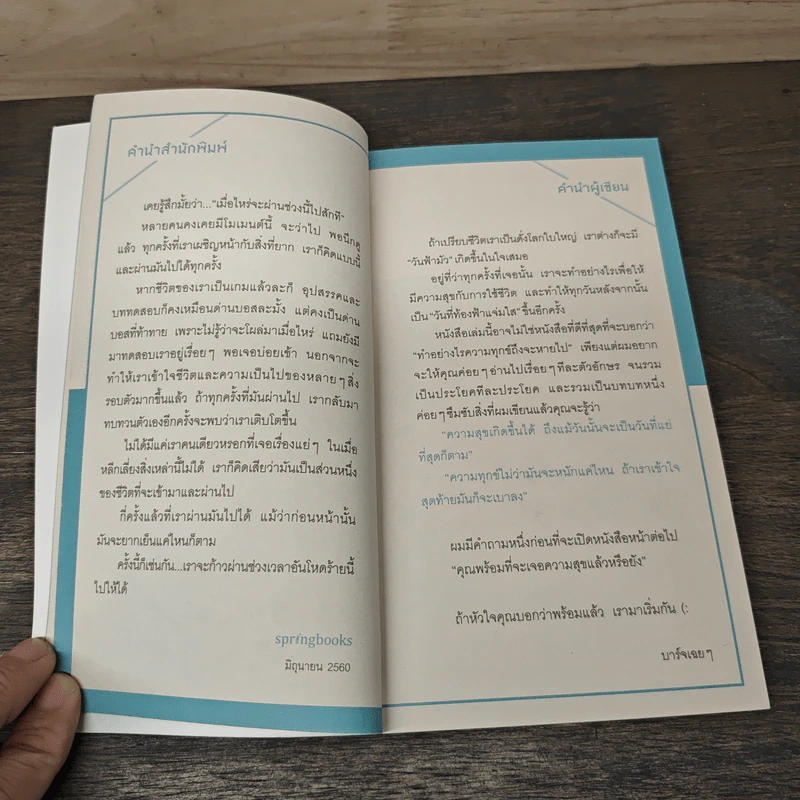 คำนำสำนักพิมพ์
เคยรู้สึกมั้ยว่า..."เมื่อไหร่จะผ่านช่วงนี้ไปสักที"
หลายคนคงเคยมีโมเมนต์นี้ จะว่าไป พอนึกดู
แล้ว ทุกครั้งที่เราเผชิญหน้ากับสิ่งที่ยาก เราก็คิดแบบนี้
และผ่านมันไปได้ทุกครั้ง
หากชีวิตของเราเป็นเกมแล้วละก็ อุปสรรคและ
บททดสอบก็คงเหมือนด่านบอสละมั้ง แต่คงเป็นด่าน
บอสที่ท้าทาย เพราะไม่รู้ว่าจะโผล่มาเมื่อไหร่ แถมยังมี
มาทดสอบเราอยู่เรื่อยๆ พอเจอบ่อยเข้า นอกจากจะ
ทำให้เราเข้าใจชีวิตและความเป็นไปของหลายๆ สิ่ง
รอบตัวมากขึ้นแล้ว ถ้าทุกครั้งที่มันผ่านไป เรากลับมา
ทบทวนตัวเองอีกครั้งจะพบว่าเราเติบโตขึ้น
ไม่ได้มีแค่เราคนเดียวหรอกที่เจอเรื่องแย่ๆ ในเมื่อ
หลีกเลี่ยงสิ่งเหล่านี้ไม่ได้ เราก็คิดเสียว่ามันเป็นส่วนหนึ่ง
ของชีวิตที่จะเข้ามาและผ่านไป
กี่ครั้งแล้วที่เราผ่านมันไปได้ แม้ว่าก่อนหน้านั้น
มันจะยากเย็นแค่ไหนก็ตาม
ครั้งนี้ก็เช่นกัน...เราจะก้าวผ่านช่วงเวลาอันโหดร้ายนี้
ไปให้ได้
springbooks
มิถุนายน 2560
คำนำผู้เขียน
ถ้าเปรียบชีวิตเราเป็นดั่งโลกใบใหญ่ เราต่างก็จะมี
"วันฟ้ามัว" เกิดขึ้นในใจเสมอ
อยู่ที่ว่าทุกครั้งที่เจอนั้น เราจะทำอย่างไรเพื่อให้
มีความสุขกับการใช้ชีวิต และทำให้ทุกวันหลังจากนั้น
เป็น "วันที่ท้องฟ้าแจ่มใส" ขึ้นอีกครั้ง
หนังสือเล่มนี้อาจไม่ใช่หนังสือที่ดีที่สุดที่จะบอกว่า
"ทำอย่างไรความทุกข์ถึงจะหายไป" เพียงแต่ผมอยาก
จะให้คุณค่อยๆ อ่านไปเรื่อยๆ ทีละตัวอักษร จนรวม
เป็นประโยคทีละประโยค และรวมเป็นบทบทหนึ่ง
ค่อยๆ ซึมซับสิ่งที่ผมเขียนแล้วคุณจะรู้ว่า
"ความสุขเกิดขึ้นได้ ถึงแม้วันนั้นจะเป็นวันที่แย่
ที่สุดก็ตาม"
"ความทุกข์ไม่ว่ามันจะหนักแค่ไหน ถ้าเราเข้าใจ
สุดท้ายมันก็จะเบาลง"
ผมมีคำถามหนึ่งก่อนที่จะเปิดหนังสือหน้าต่อไป
"คุณพร้อมที่จะเจอความสุขแล้วหรือยัง"
ถ้าหัวใจคุณบอกว่าพร้อมแล้ว เรามาเริ่มกัน (:
บาร์จเฉยๆ